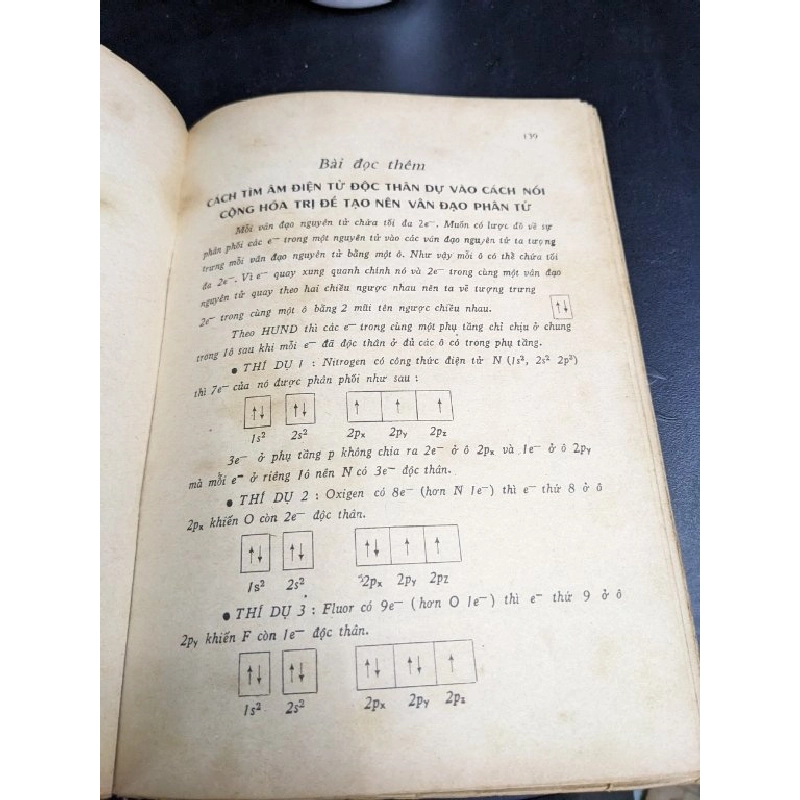 139
Bài đọc thêm
CÁCH TÌM ÂM ĐIỆN TỬ ĐỘC THÂN DỰ VÀO CÁCH NỐI
CỘNG HÓA TRỊ ĐỂ TẠO NÊN VÂN ĐẠO PHÂN TỬ
Mỗi vân đạo nguyên tử chứa tối đa 2e⁻. Muốn có lược đồ về sự
phân phối các e⁻ trong một nguyên tử vào các vân đạo nguyên tử ta tượng
trưng mỗi vân đạo nguyên tử bằng một ô. Như vậy mỗi ô có thể chứa tối
đa 2e⁻. Vì e⁻ quay xung quanh chính nó và 2e⁻ trong cùng một vân đạo
nguyên tử quay theo hai chiều ngược nhau nên ta vẽ tượng trưng
2e⁻ trong cùng một ô bằng 2 mũi tên ngược chiều nhau. ↑↓
Theo HUND thì các e⁻ trong cùng một phụ tầng chỉ chịu ở chung
trong 1ô sau khi mỗi e⁻ đã độc thân ở đủ các ô có trong phụ tầng.
● THÍ DỤ 1 : Nitrogen có công thức điện tử N (1s², 2s² 2p³)
thì 7e⁻ của nó được phân phối như sau :
↑↓ ↑↓ ↑ ↑ ↑
1s² 2s² 2pₓ 2pᵧ 2p_z
3e⁻ ở phụ tầng p không chia ra 2e⁻ ở ô 2pₓ và 1e⁻ ở ô 2pᵧ
mà mỗi e⁻ ở riêng 1ô nên N có 3e⁻ độc thân.
● THÍ DỤ 2 : Oxigen có 8e⁻ (hơn N 1e⁻) thì e⁻ thứ 8 ở ô
2pₓ khiến O còn 2e⁻ độc thân.
↑↓ ↑↓ ↑↓ ↑ ↑
1s² 2s² 2pₓ 2pᵧ 2p_z
● THÍ DỤ 3 : Fluor có 9e⁻ (hơn O 1e⁻) thì e⁻ thứ 9 ở ô
2pᵧ khiến F còn 1e⁻ độc thân.
↑↓ ↑↓ ↑↓ ↑↓ ↑
1s² 2s² 2pₓ 2pᵧ 2p_z